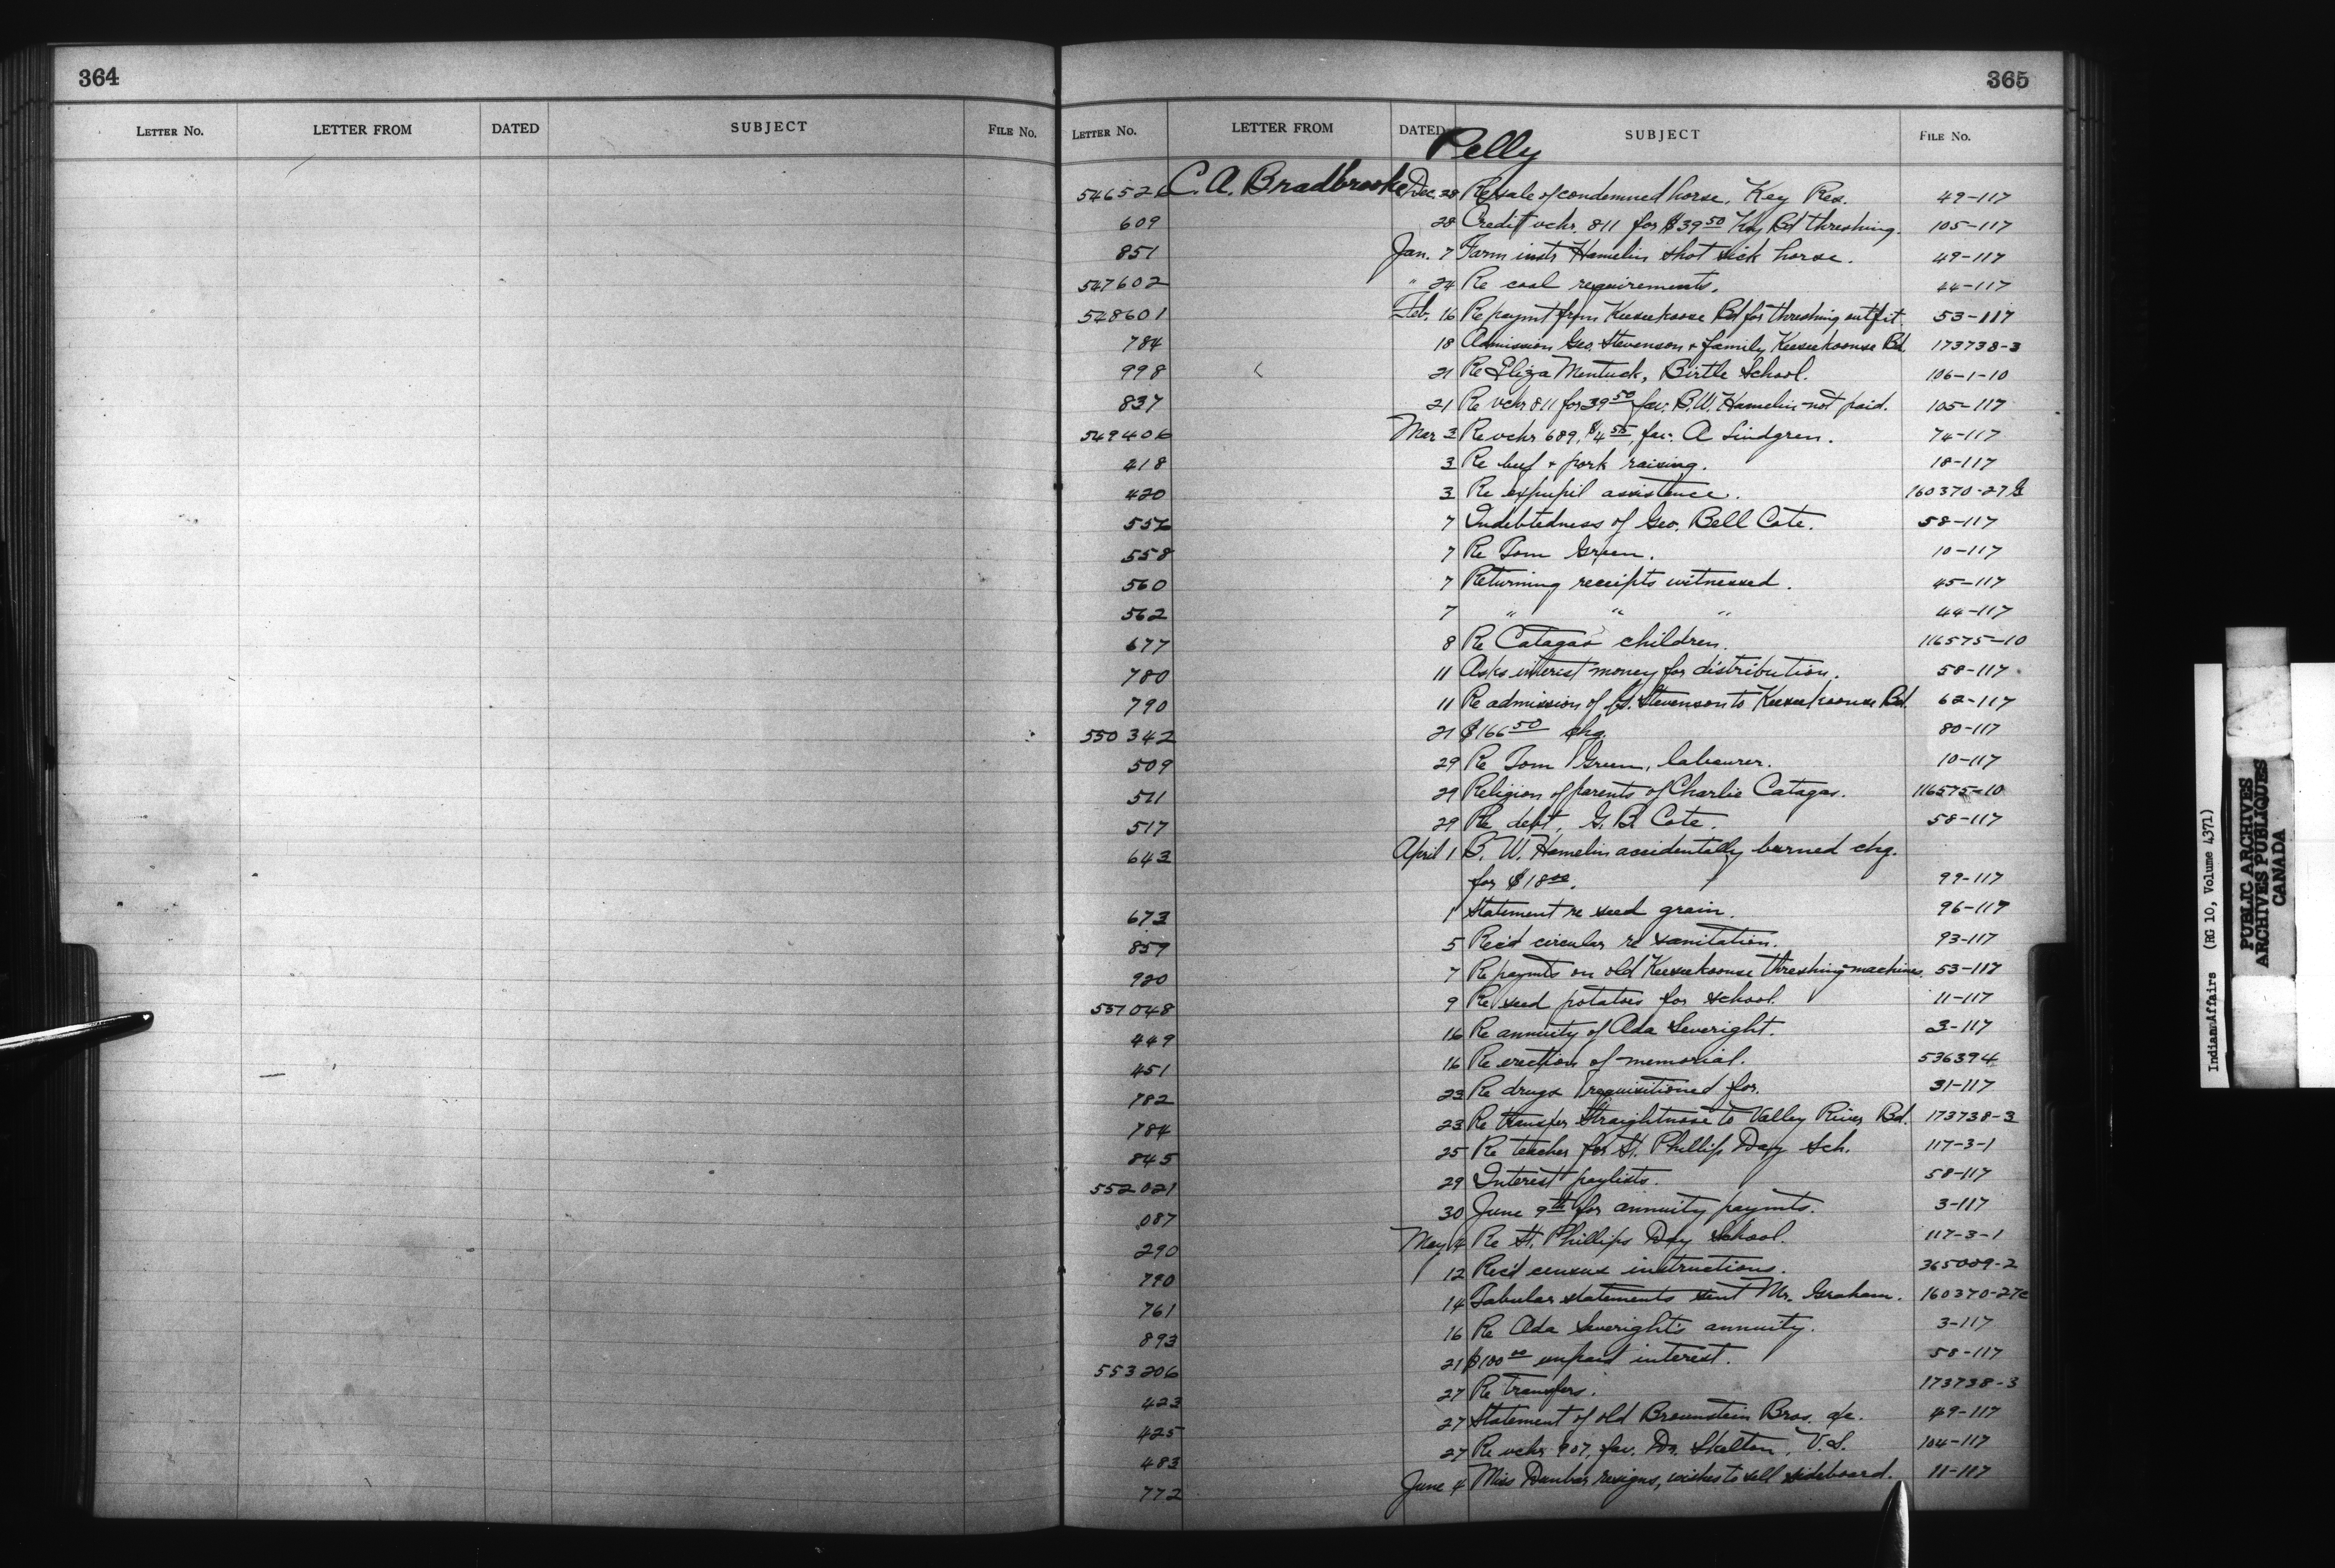 364
LETTER NO. LETTER FROM DATED SUBJECT FILE NO.
365
LETTER NO. LETTER FROM DATED SUBJECT FILE NO.
Pelly
546526 C. A. Bradbrooke Dec. 28 Re sale of condemned horse, Key Res. 49-117
609 28 Credit vchr. 811 for $39.50 Key Bd threshing. 105-117
851 Jan. 7 Farm instr Hamelin shot sick horse. 49-117
547602 " 24 Re coal requirements. 44-117
548601 Feb. 16 Re paymt from Keeseekoose Bd for threshing outfit 53-117
784 18 Admission Geo. Stevenson & family Keeseekoonse Bd. 173738-3
998 21 Re Eliza Mentuck, Birtle School. 106-1-10
837 21 Re vchr 811 for 39.50 fav. B.W. Hamelin not paid. 105-117
549406 Mar 3 Re vchr 689, $4.55, fav. A Lindgren. 74-117
418 3 Re beef & pork raising. 18-117
420 3 Re expupil assistance. 160370-27G
556 7 Indebtedness of Geo. Bell Cote. 58-117
558 7 Re Tom Green. 10-117
560 7 Returning receipts witnessed. 45-117
562 7 " " " 44-117
677 8 Re Catagas children. 116575-10
780 11 Asks interest money for distribution. 58-117
790 11 Re admission of G. Stevenson to Keeseekoonse Bd. 62-117
550342 21 $166.50 chq. 80-117
509 29 Re Tom Green, labourer. 10-117
511 29 Religion of parents of Charlie Catagas. 116575-10
517 29 Re debt, G. B. Cote. 58-117
643 April 1 B. W. Hamelin accidentally burned chq.
for $18.00. 99-117
673 1 Statement re seed grain. 96-117
859 5 Rec'd circular re sanitation. 93-117
920 7 Re paymts on old Keeseekoonse threshing machines. 53-117
551048 9 Re seed potatoes for school. 11-117
449 16 Re annuity of Ada Severight. 3-117
451 16 Re erection of memorial. 536394
782 23 Re drugs requisitioned for. 31-117
784 23 Re transfer Straightnose to Valley River Bd. 173738-3
845 25 Re teacher for St. Phillips Day Sch. 117-3-1
552021 29 Interest paylists. 58-117
087 30 June 9th for annuity paymts. 3-117
290 May 4 Re St. Phillips Day School. 117-3-1
790 12 Rec'd census instructions. 365009-2
761 14 Tabular statements sent Mr. Graham. 160370-27c
893 16 Re Ada Severight's annuity. 3-117
553206 21 $100.00 unpaid interest. 58-117
423 27 Re transfers. 173738-3
425 27 Statement of old Brownstein Bros. a/c. 49-117
483 27 Re vchr 907, fav. Dr. Skelton, V.S. 104-117
772 June 4 Miss Dunbar resigns, wishes to sell sideboard. 11-117
Indian Affairs (RG 10, Volume 4371)
PUBLIC ARCHIVES
ARCHIVES PUBLIQUES
CANADA